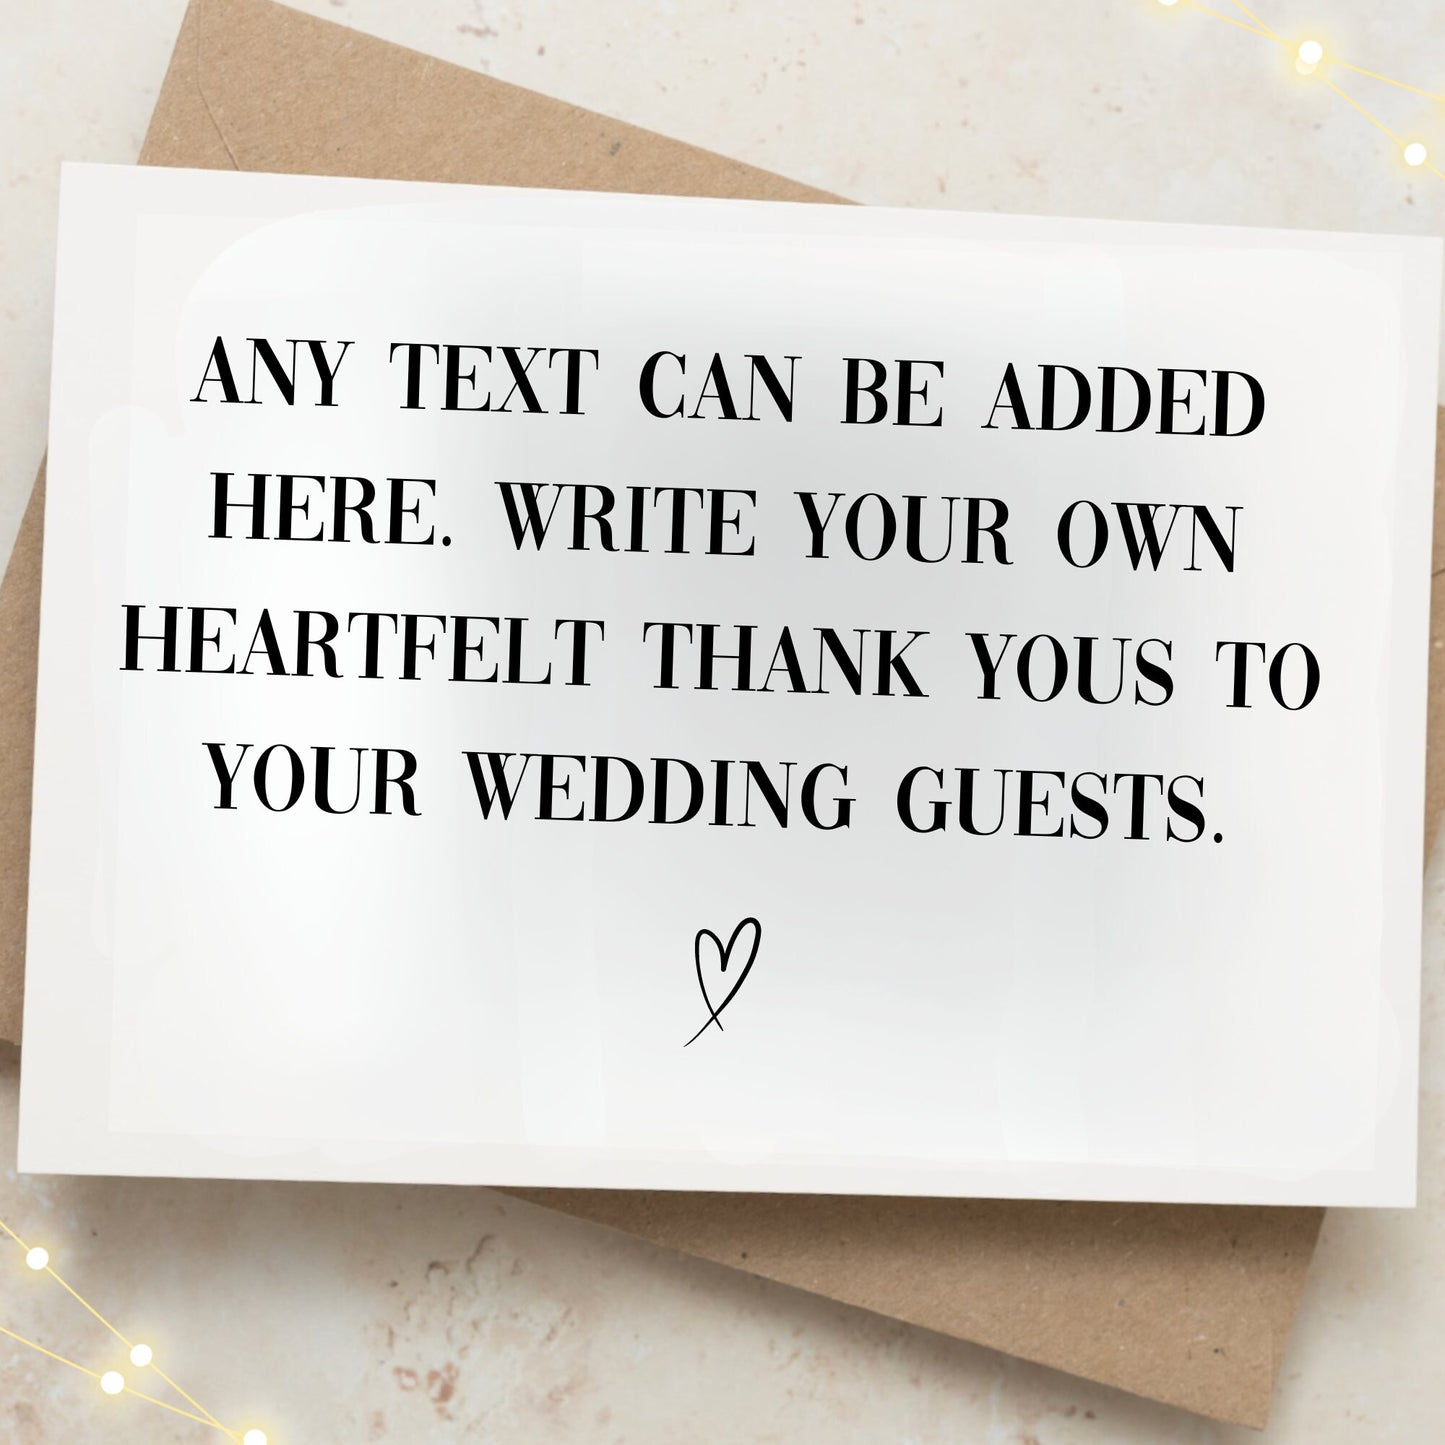 ANY TEXT CAN BE ADDED
HERE. WRITE YOUR OWN
HEARTFELT THANK YOUS TO
YOUR WEDDING GUESTS.